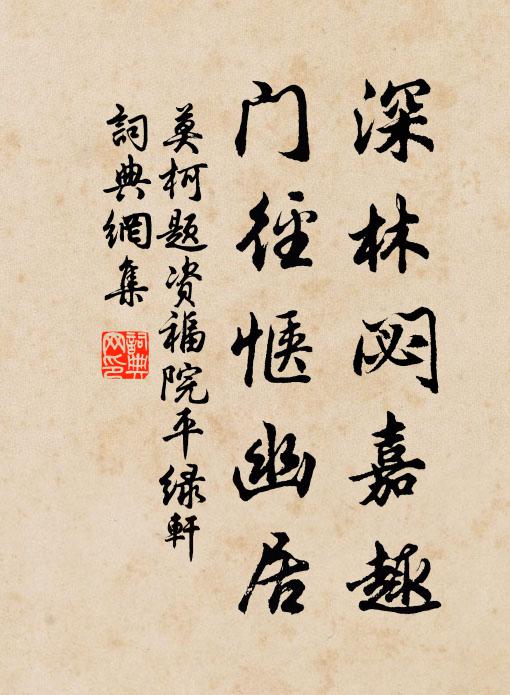 深林閟嘉趣
门径惬幽居
莫柯题资福院平绿軒
詞典網集
詞典网印